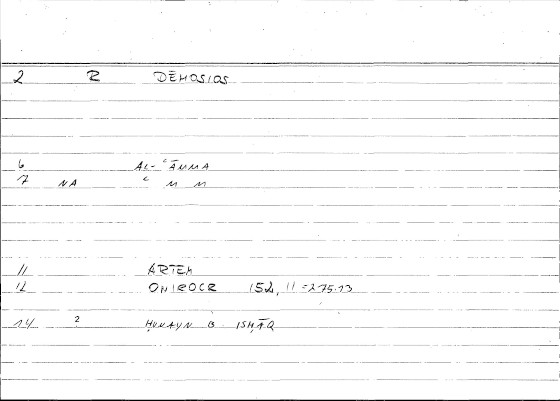 2 R DĒMOSIOS
6 AL-ʿĀMMA
7 NA ʿ M M
11 ARTEM
12 ONIROCR 152, 11 = 275.13
14 2 ḤUNAYN B ISḤĀQ